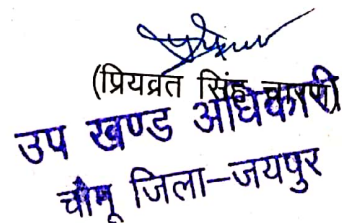 (प्रियव्रत सिंह चारण)
उप खण्ड अधिकारी
चौमू जिला-जयपुर